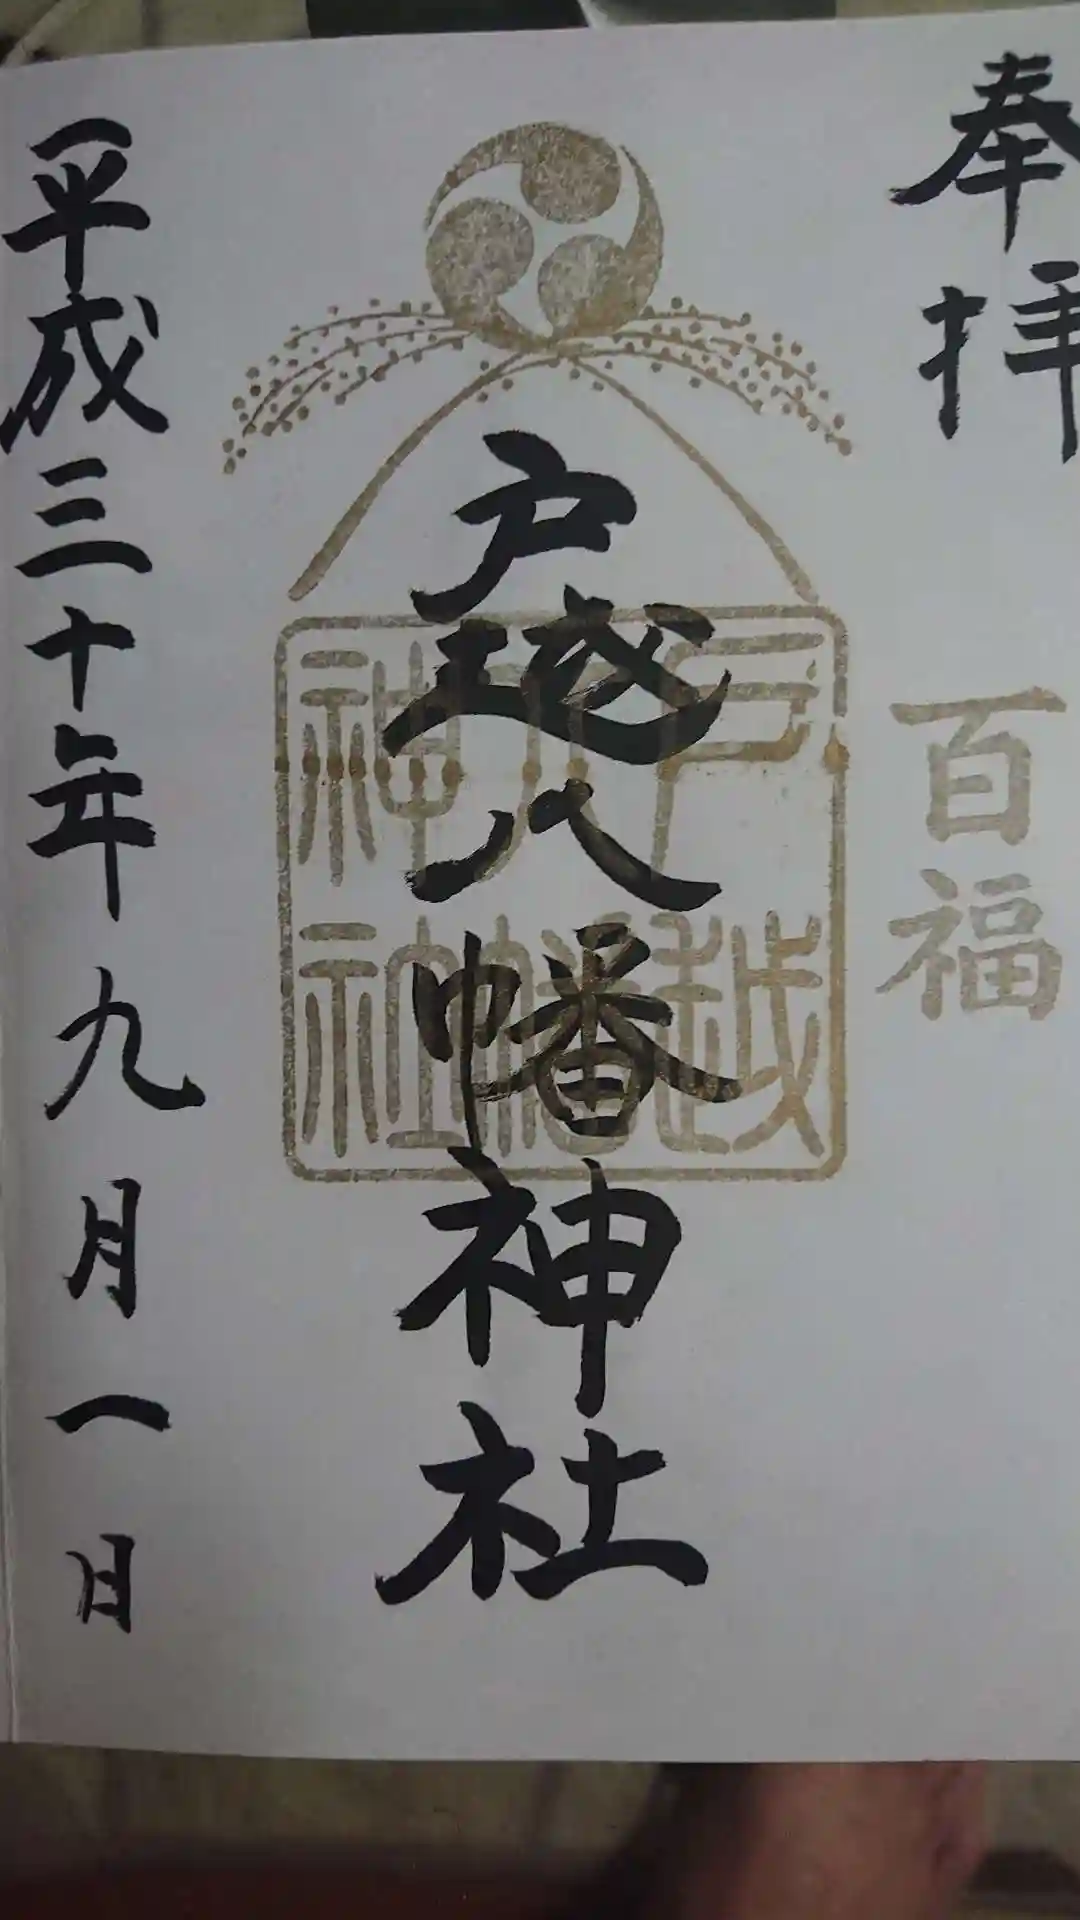 奉拝
百福
戸越八幡神社
戸越
八幡
神社
平成三十年九月一日